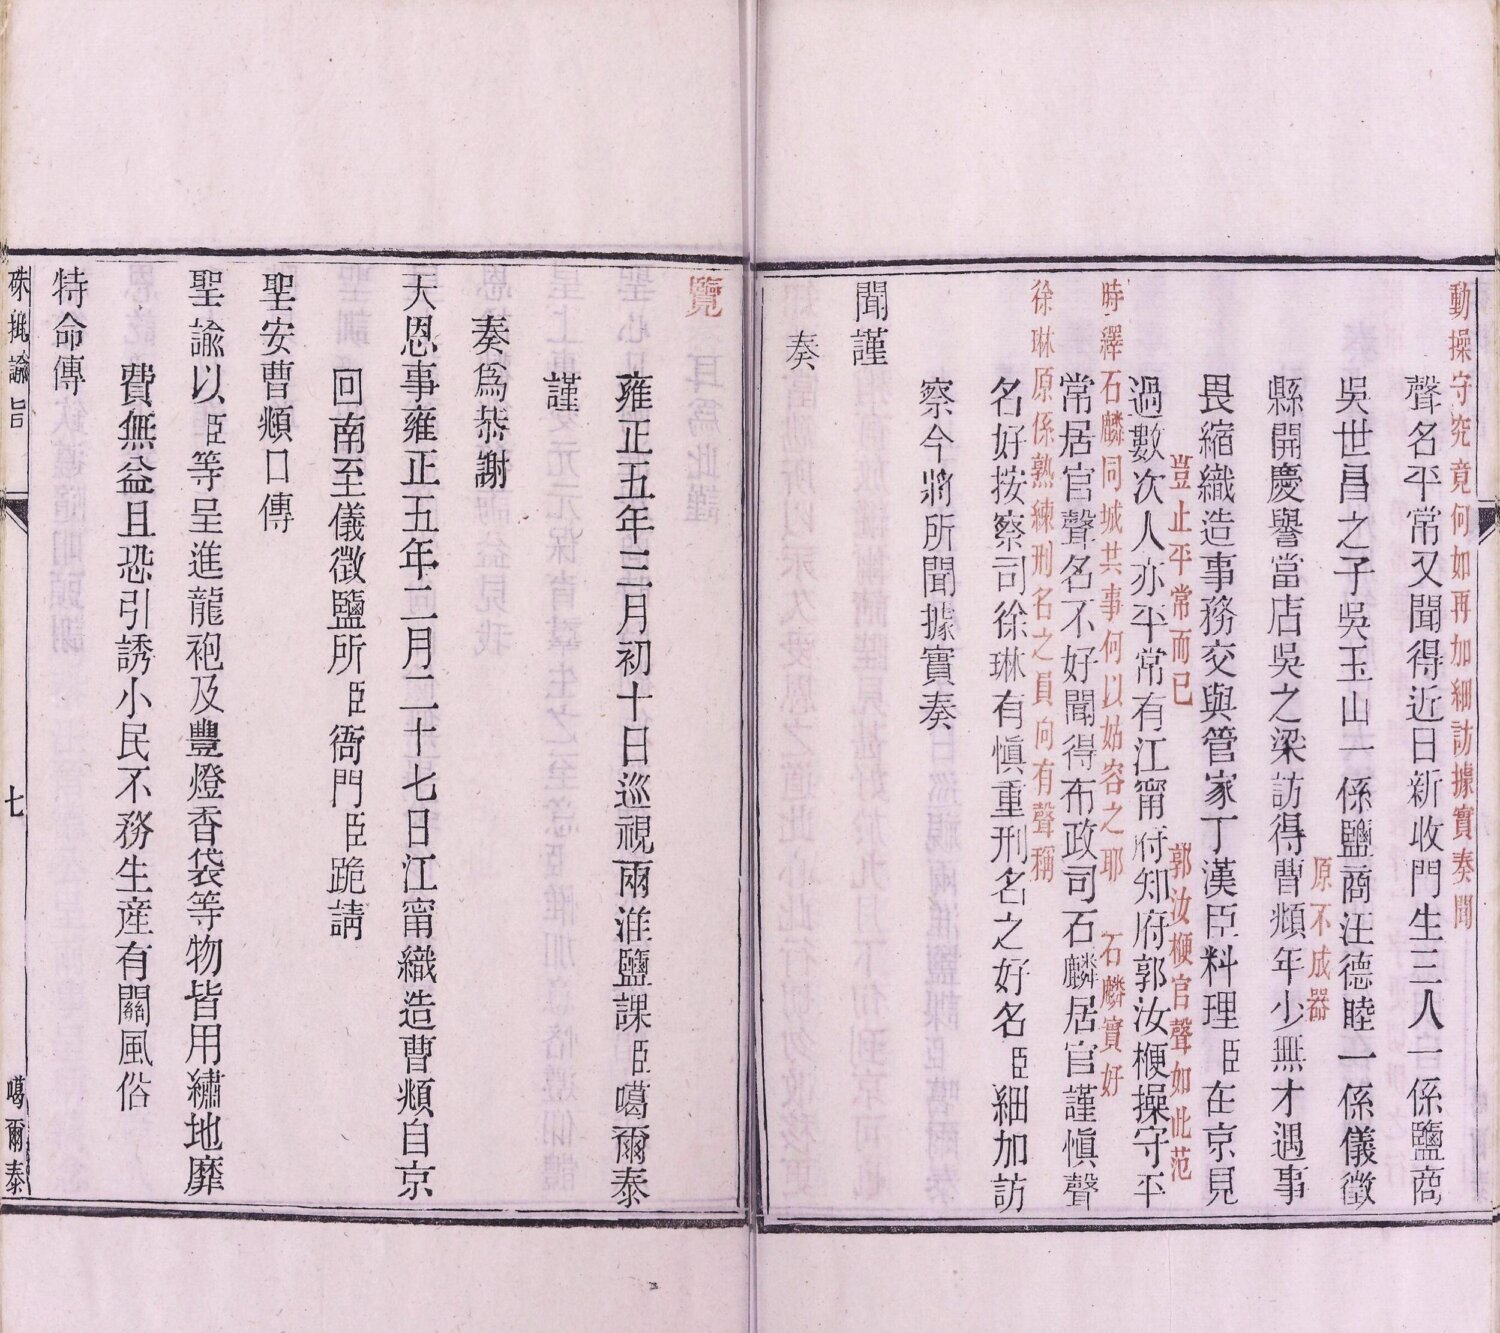 動操守究竟何如再加細訪據實奏聞
聲名平常又聞得近日新收門生三人一係鹽商
吳世昌之子吳玉山一係鹽商汪德睦一係儀徵
原不成器
縣開慶譽當店吳之梁訪得曹頫年少無才遇事
畏縮織造事務交與管家丁漢臣料理臣在京見
豈止平常而已
郭汝楩官聲如此范
過數次人亦平常有江甯府知府郭汝楩操守平
時繹石麟同城共事何以姑容之耶
石麟實好
常居官聲名不好聞得布政司石麟居官謹慎聲
徐琳原係熟練刑名之員向有聲稱
名好按察司徐琳有慎重刑名之好名臣細加訪
察今將所聞據實奏
聞謹
奏
覽
雍正五年三月初十日巡視兩淮鹽課臣噶爾泰
謹
奏為恭謝
天恩事雍正五年二月二十七日江甯織造曹頫自京
回南至儀徵鹽所臣衙門臣跪請
聖安曹頫口傳
聖諭以臣等呈進龍袍及豐燈香袋等物皆用繡地靡
費無益且恐引誘小民不務生產有關風俗
特命傳
硃批諭旨
七
噶爾泰